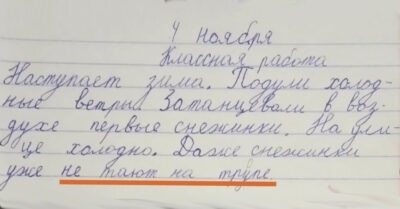 4 ноября
Классная работа
Наступает зима. Подули холод-
ные ветры. Затанцевали в воз-
духе первые снежинки. На ули-
це холодно. Даже снежинки
уже не тают на трупе.